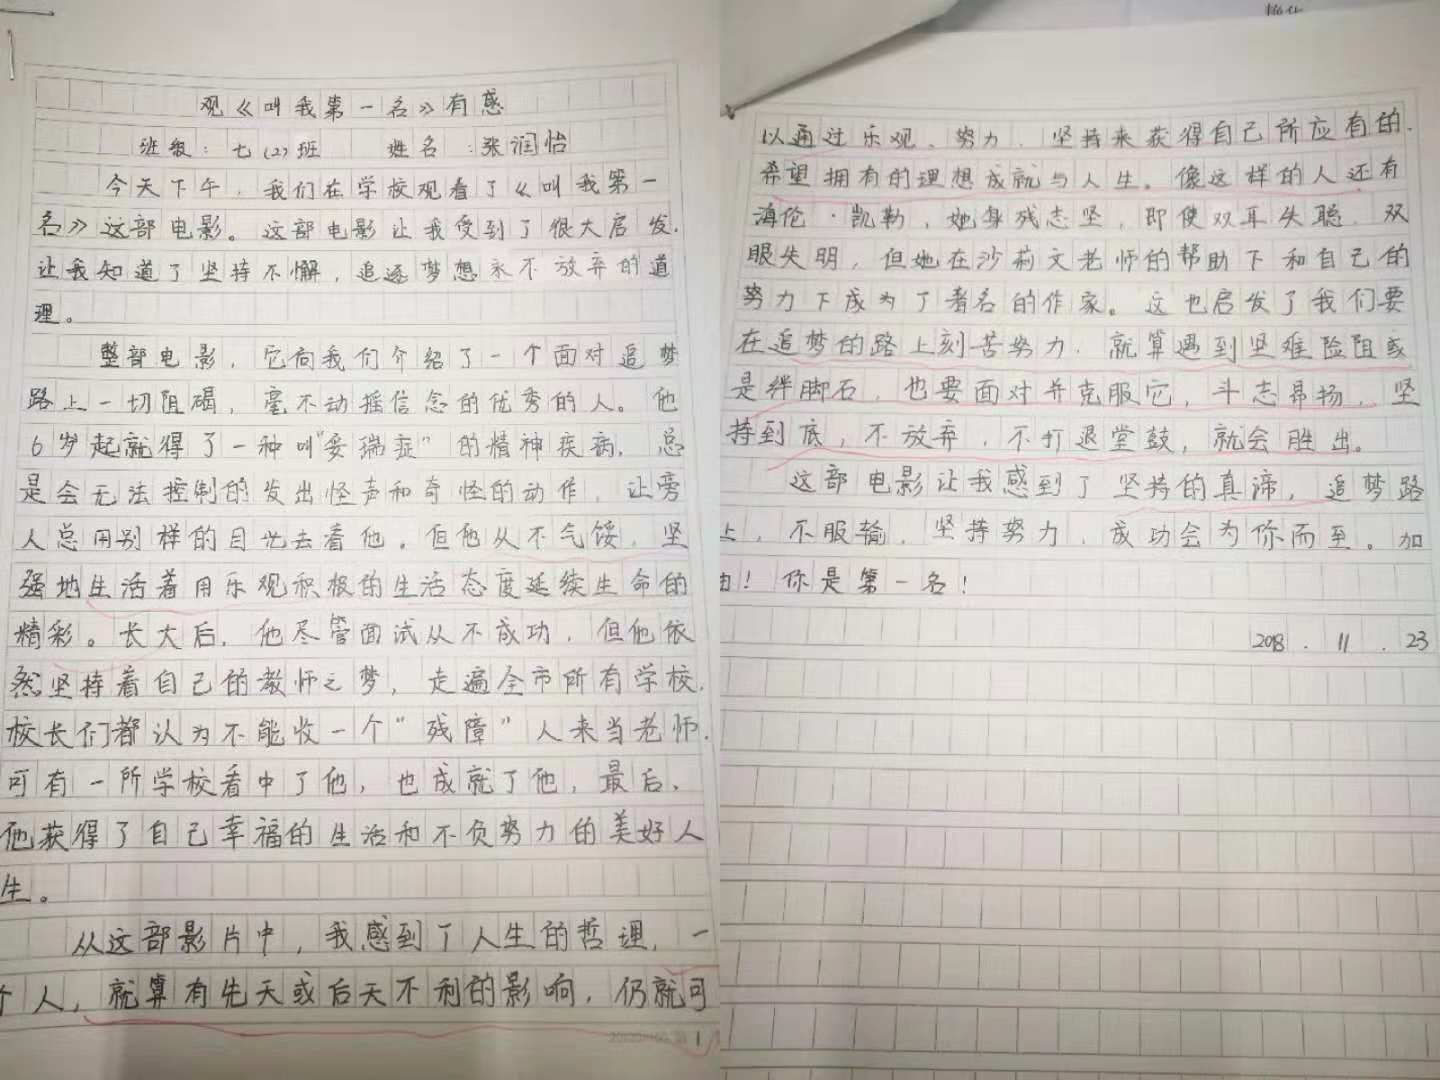 观《叫我第一名》有感
班级：七(2)班 姓名：张润怡
今天下午，我们在学校观看了《叫我第一
名》这部电影。这部电影让我受到了很大启发，
让我知道了坚持不懈，追逐梦想永不放弃的道
理。
整部电影，它向我们介绍了一个面对追梦
路上一切阻碍，毫不动摇信念的优秀的人。他
6岁起就得了一种叫“妥瑞症”的精神疾病，总
是会无法控制的发出怪声和奇怪的动作，让旁
人总用别样的目光去看他。但他从不气馁，坚
强地生活着用乐观积极的生活态度延续生命的
精彩。长大后，他尽管面试从不成功，但他依
然坚持着自己的教师之梦，走遍全市所有学校，
校长们都认为不能收一个“残障”人来当老师，
可有一所学校看中了他，也成就了他，最后，
他获得了自己幸福的生活和不负努力的美好人
生。
从这部影片中，我感到了人生的哲理，一
个人，就算有先天或后天不利的影响，仍就可
以通过乐观、努力、坚持来获得自己所应有的，
希望拥有的理想成就与人生。像这样的人还有
海伦·凯勒，她身残志坚，即使双耳失聪，双
眼失明，但她在沙莉文老师的帮助下和自己的
努力下成为了著名的作家。这也启发了我们要
在追梦的路上刻苦努力，就算遇到坚难险阻或
是绊脚石，也要面对并克服它，斗志昂扬，坚
持到底，不放弃，不打退堂鼓，就会胜出。
这部电影让我感到了坚持的真谛，追梦路
上，不服输，坚持努力，成功会为你而至。加
由！你是第一名！
2018.11.23